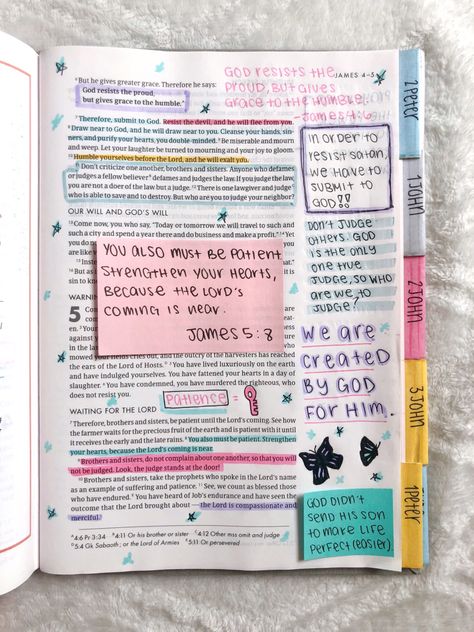 JAMES 4–5
GOD RESISTS THE
PROUD, BUT GIVES
GRACE TO THE HUMBLE.
-JAMES 4:6
⁶ But he gives greater grace. Therefore he says:
God resists the proud,
but gives grace to the humble.ᴬ
⁷ Therefore, submit to God. Resist the devil, and he will flee from you.
⁸ Draw near to God, and he will draw near to you. Cleanse your hands, sin-
ners, and purify your hearts, you double-minded. ⁹ Be miserable and mourn
and weep. Let your laughter be turned to mourning and your joy to gloom.
¹⁰ Humble yourselves before the Lord, and he will exalt you.
¹¹ Don't criticize one another, brothers and sisters. Anyone who defames
or judges a fellow believerᴮ defames and judges the law. If you judge the law,
you are not a doer of the law but a judge. ¹² There is one lawgiver and judgeᶜ
who is able to save and to destroy. But who are you to judge your neighbor?
OUR WILL AND GOD'S WILL
¹³ Come now, you who say, "Today or tomorrow we will travel to such and
such a city and spend a year there and do business and make a profit." ¹⁴ Yet
YOU ALSO MUST BE PATIENT.
STRENGTHEN YOUR HEARTS,
BECAUSE THE LORD'S
COMING IS NEAR.
JAMES 5:8
WARNIN
5
mowed your fields cries out, and the outcry of the harvesters has reached
the ears of the Lord of Hosts. ⁵ You have lived luxuriously on the earth
and have indulged yourselves. You have fattened your hearts in a day of
slaughter. ⁶ You have condemned, you have murdered the righteous, who
does not resist you.
Patience =
WAITING FOR THE LORD
⁷ Therefore, brothers and sisters, be patient until the Lord's coming. See how
the farmer waits for the precious fruit of the earth and is patient with it until
it receives the early and the late rains. ⁸ You also must be patient. Strengthen
your hearts, because the Lord's coming is near.
⁹ Brothers and sisters, do not complain about one another, so that you will
not be judged. Look, the judge stands at the door!
¹⁰ Brothers and sisters, take the prophets who spoke in the Lord's name
as an example of suffering and patience. ¹¹ See, we count as blessed those
who have endured. You have heard of Job's endurance and have seen the
outcome that the Lord brought about — the Lord is compassionate and
merciful.
ᴬ 4:6 Pr 3:34 ᴮ 4:11 Or his brother or sister ᶜ 4:12 Other mss omit and judge
ᴰ 5:4 Gk Sabaoth; or the Lord of Armies ᴱ 5:11 Or persevered
in order to
resist satan,
we have to
submit to
GOD!!
DON'T JUDGE
OTHERS. GOD
IS THE ONLY
ONE TRUE
JUDGE, SO WHO
ARE WE TO
JUDGE?
WE ARE
CREATED
BY GOD
FOR HIM.
GOD DIDN'T
SEND HIS SON
TO MAKE LIFE
PERFECT (EASIER)
2 Peter
1 JOHN
2 JOHN
3 JOHN
1 Peter